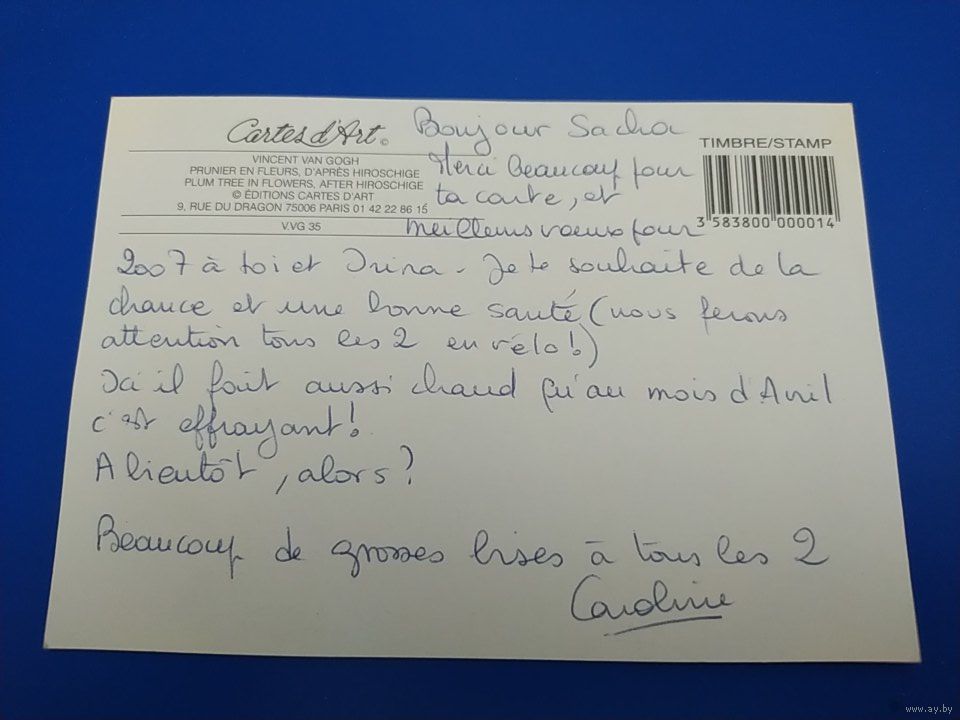 Cartes d'Art ©
VINCENT VAN GOGH
PRUNIER EN FLEURS, D'APRÈS HIROSCHIGE
PLUM TREE IN FLOWERS, AFTER HIROSCHIGE
© ÉDITIONS CARTES D'ART
9, RUE DU DRAGON 75006 PARIS 01 42 22 86 15
V.VG 35
TIMBRE/STAMP
3 583800 000014
Bonjour Sacha
Merci beaucoup pour
ta carte, et
meilleurs vœux pour
2007 à toi et Irina. Je te souhaite de la
chance et une bonne santé (nous ferons
attention tous les 2 en vélo!)
Ici il fait aussi chaud qu'au mois d'Avril
c'est effrayant!
A bientôt, alors?
Beaucoup de grosses bises à tous les 2
Caroline
www.ay.by